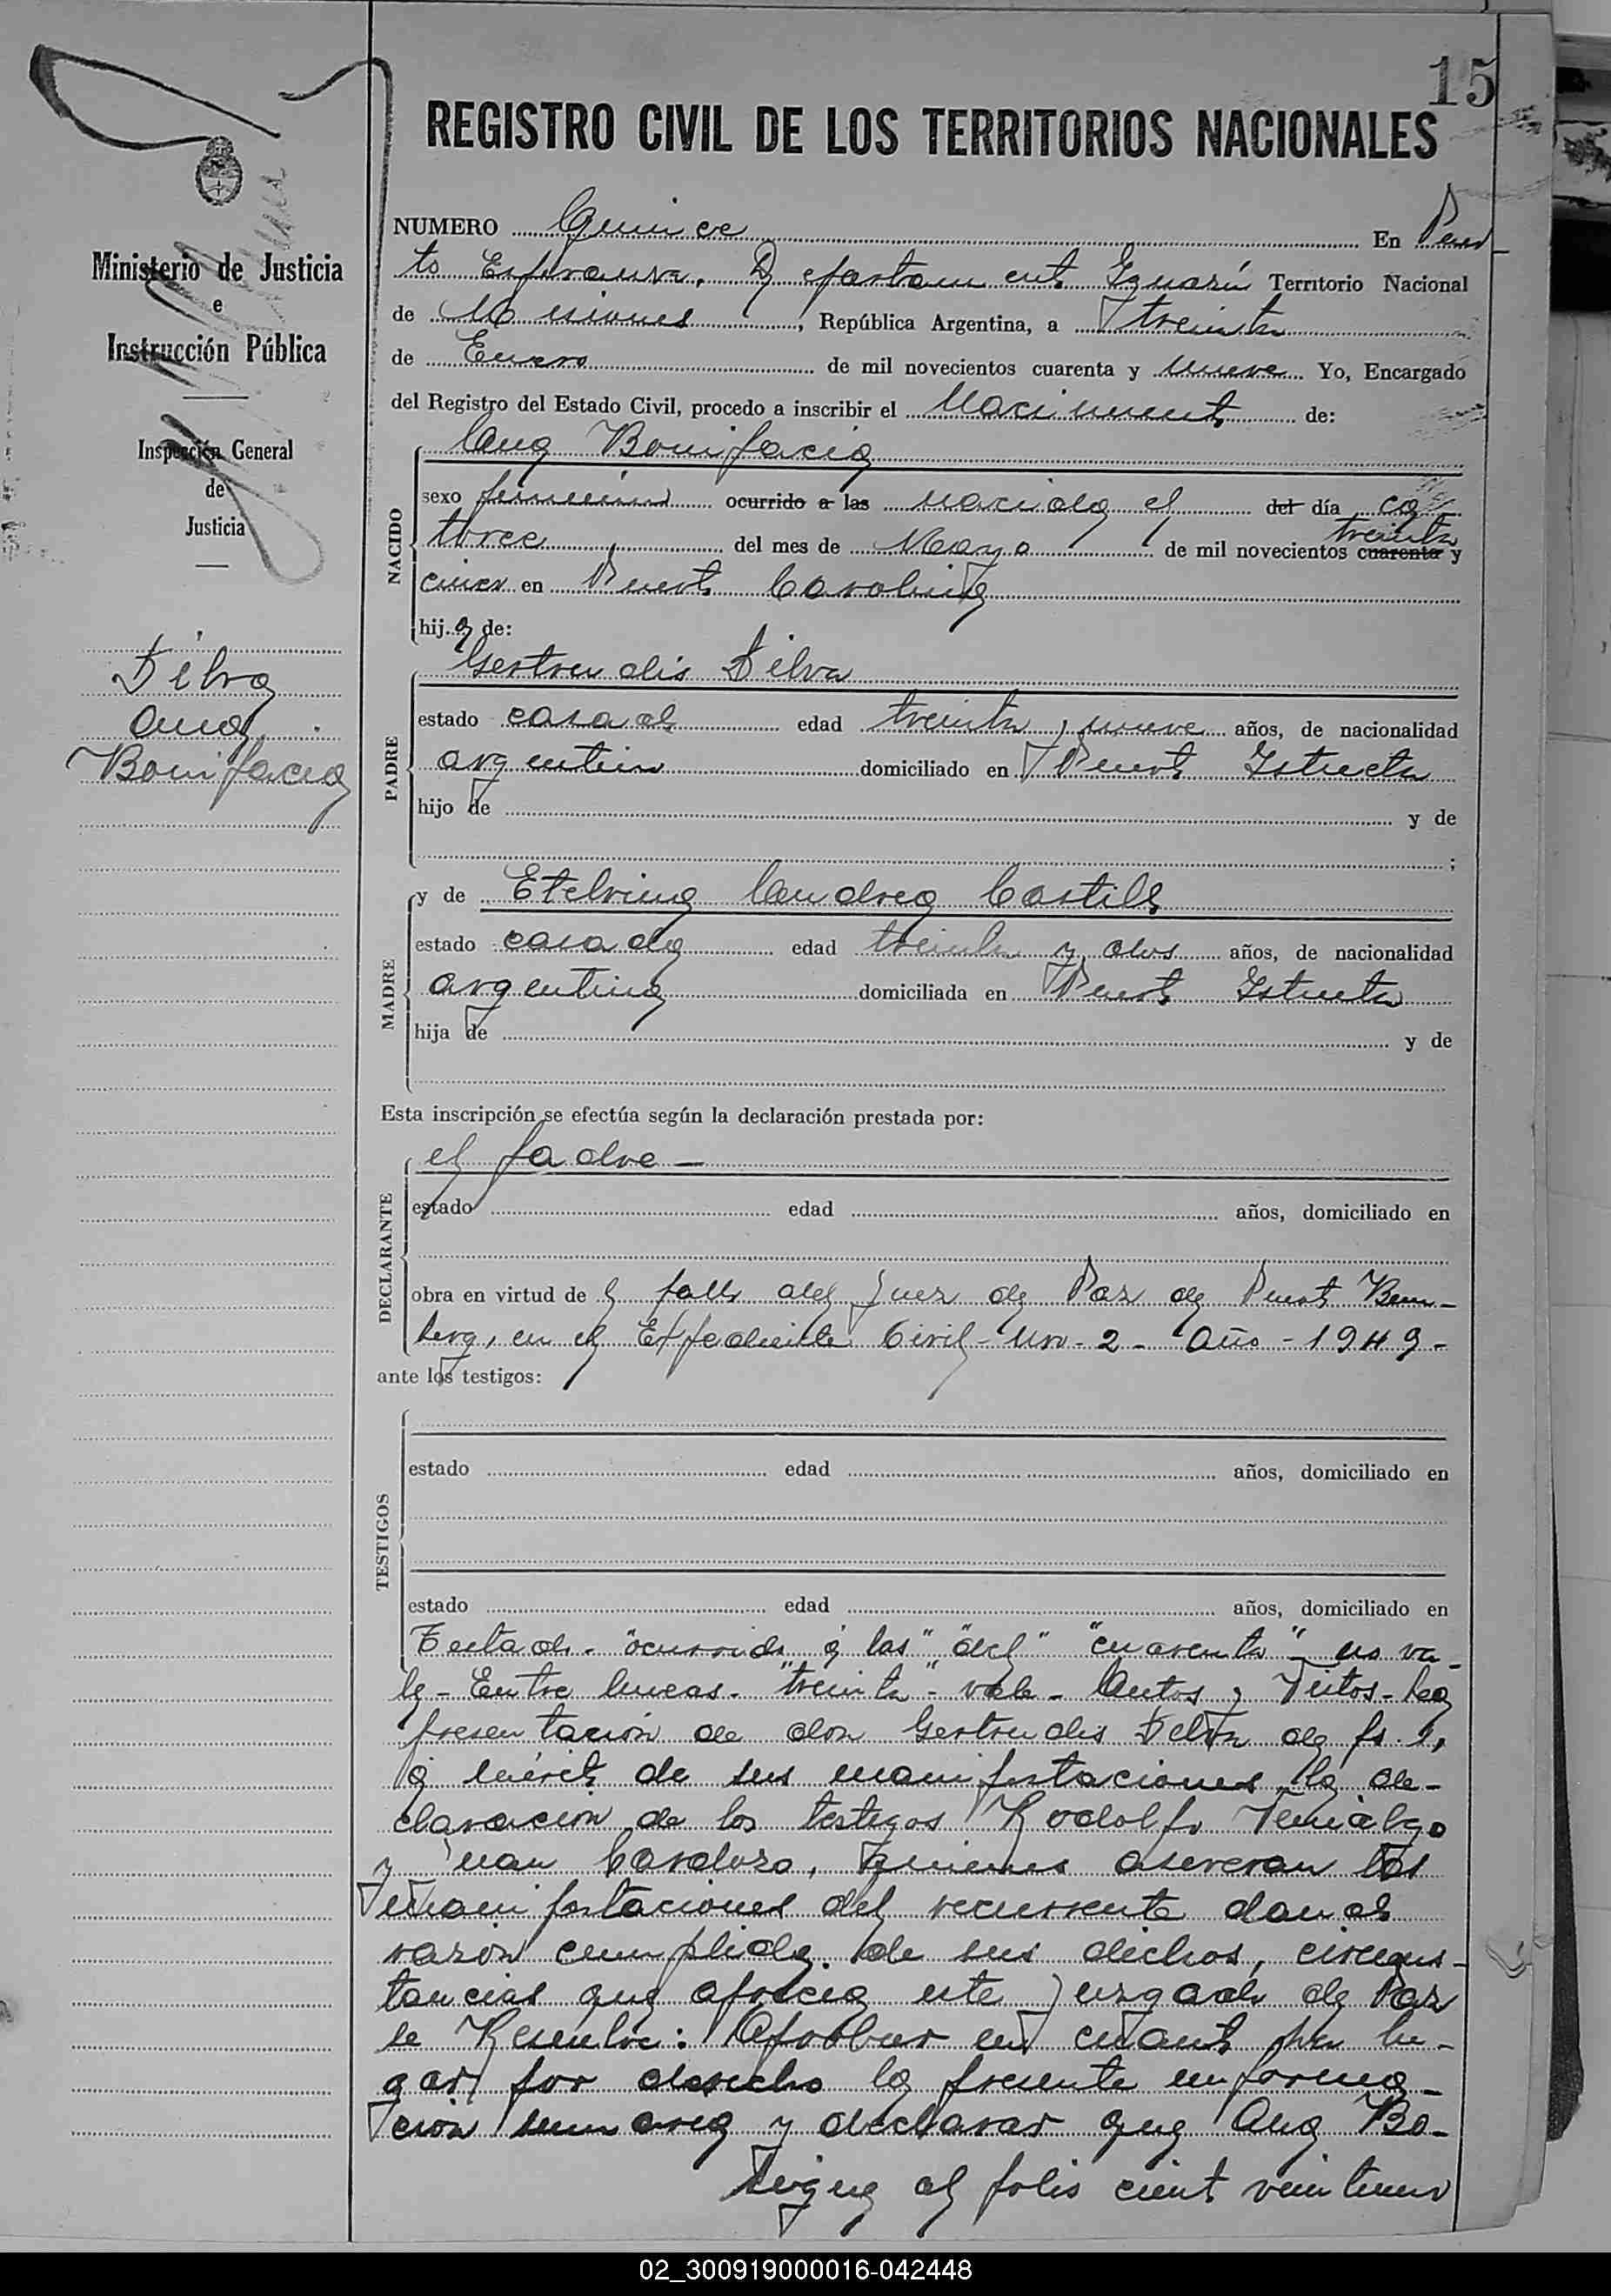 15
REGISTRO CIVIL DE LOS TERRITORIOS NACIONALES
Ministerio de Justicia
e
Instrucción Pública
Inspección General
de
Justicia
Silva
Ana
Bonifacia
NUMERO Quince En Puer
to Esperanza. Departamento Iguazú Territorio Nacional
de Misiones, República Argentina, a treinta
de Enero de mil novecientos cuarenta y nueve Yo, Encargado
del Registro del Estado Civil, procedo a inscribir el Nacimiento de:
NACIDO
Ana Bonifacia
sexo femenino ocurrido a las nacida el del día ca
torce del mes de Mayo de mil novecientos cuarenta treinta y
cinco en Puerto Carolina
hija de:
PADRE
Gertrudis Silva
estado casado edad treinta y nueve años, de nacionalidad
argentino domiciliado en Puerto Istueta
hijo de y de
;
MADRE
y de Etelvina Candrea Castillo
estado casada edad treinta y dos años, de nacionalidad
argentina domiciliada en Puerto Istueta
hija de y de
Esta inscripción se efectúa según la declaración prestada por:
DECLARANTE
el padre —
estado edad años, domiciliado en
obra en virtud de el fallo del Juez de Paz de Puerto Bem-
berg, en el Expediente Civil - Nro - 2 - Año - 1949 -
ante los testigos:
TESTIGOS
estado edad años, domiciliado en
estado edad años, domiciliado en
Testado. "ocurrido a las" "del" "cuarenta" - no va-
le - Entre lineas - "treinta" - vale - Autos y Vistos - La
presentación de don Gertrudis Silva de fs. 1,
a mérito de sus manifestaciones, la de-
claración de los testigos Rodolfo
y Juan Cardozo, quienes aseveran las
manifestaciones del recurrente dando
razón cumplida de sus dichos, circuns-
tancias que aprecia este Juzgado de Paz
se Resuelve: Aprobar en cuanto ha lu-
gar por derecho la presente informa-
ción sumaria y declarar que Ana Bo-
Sigue al folio ciento veintiuno
02_300919000016-042448